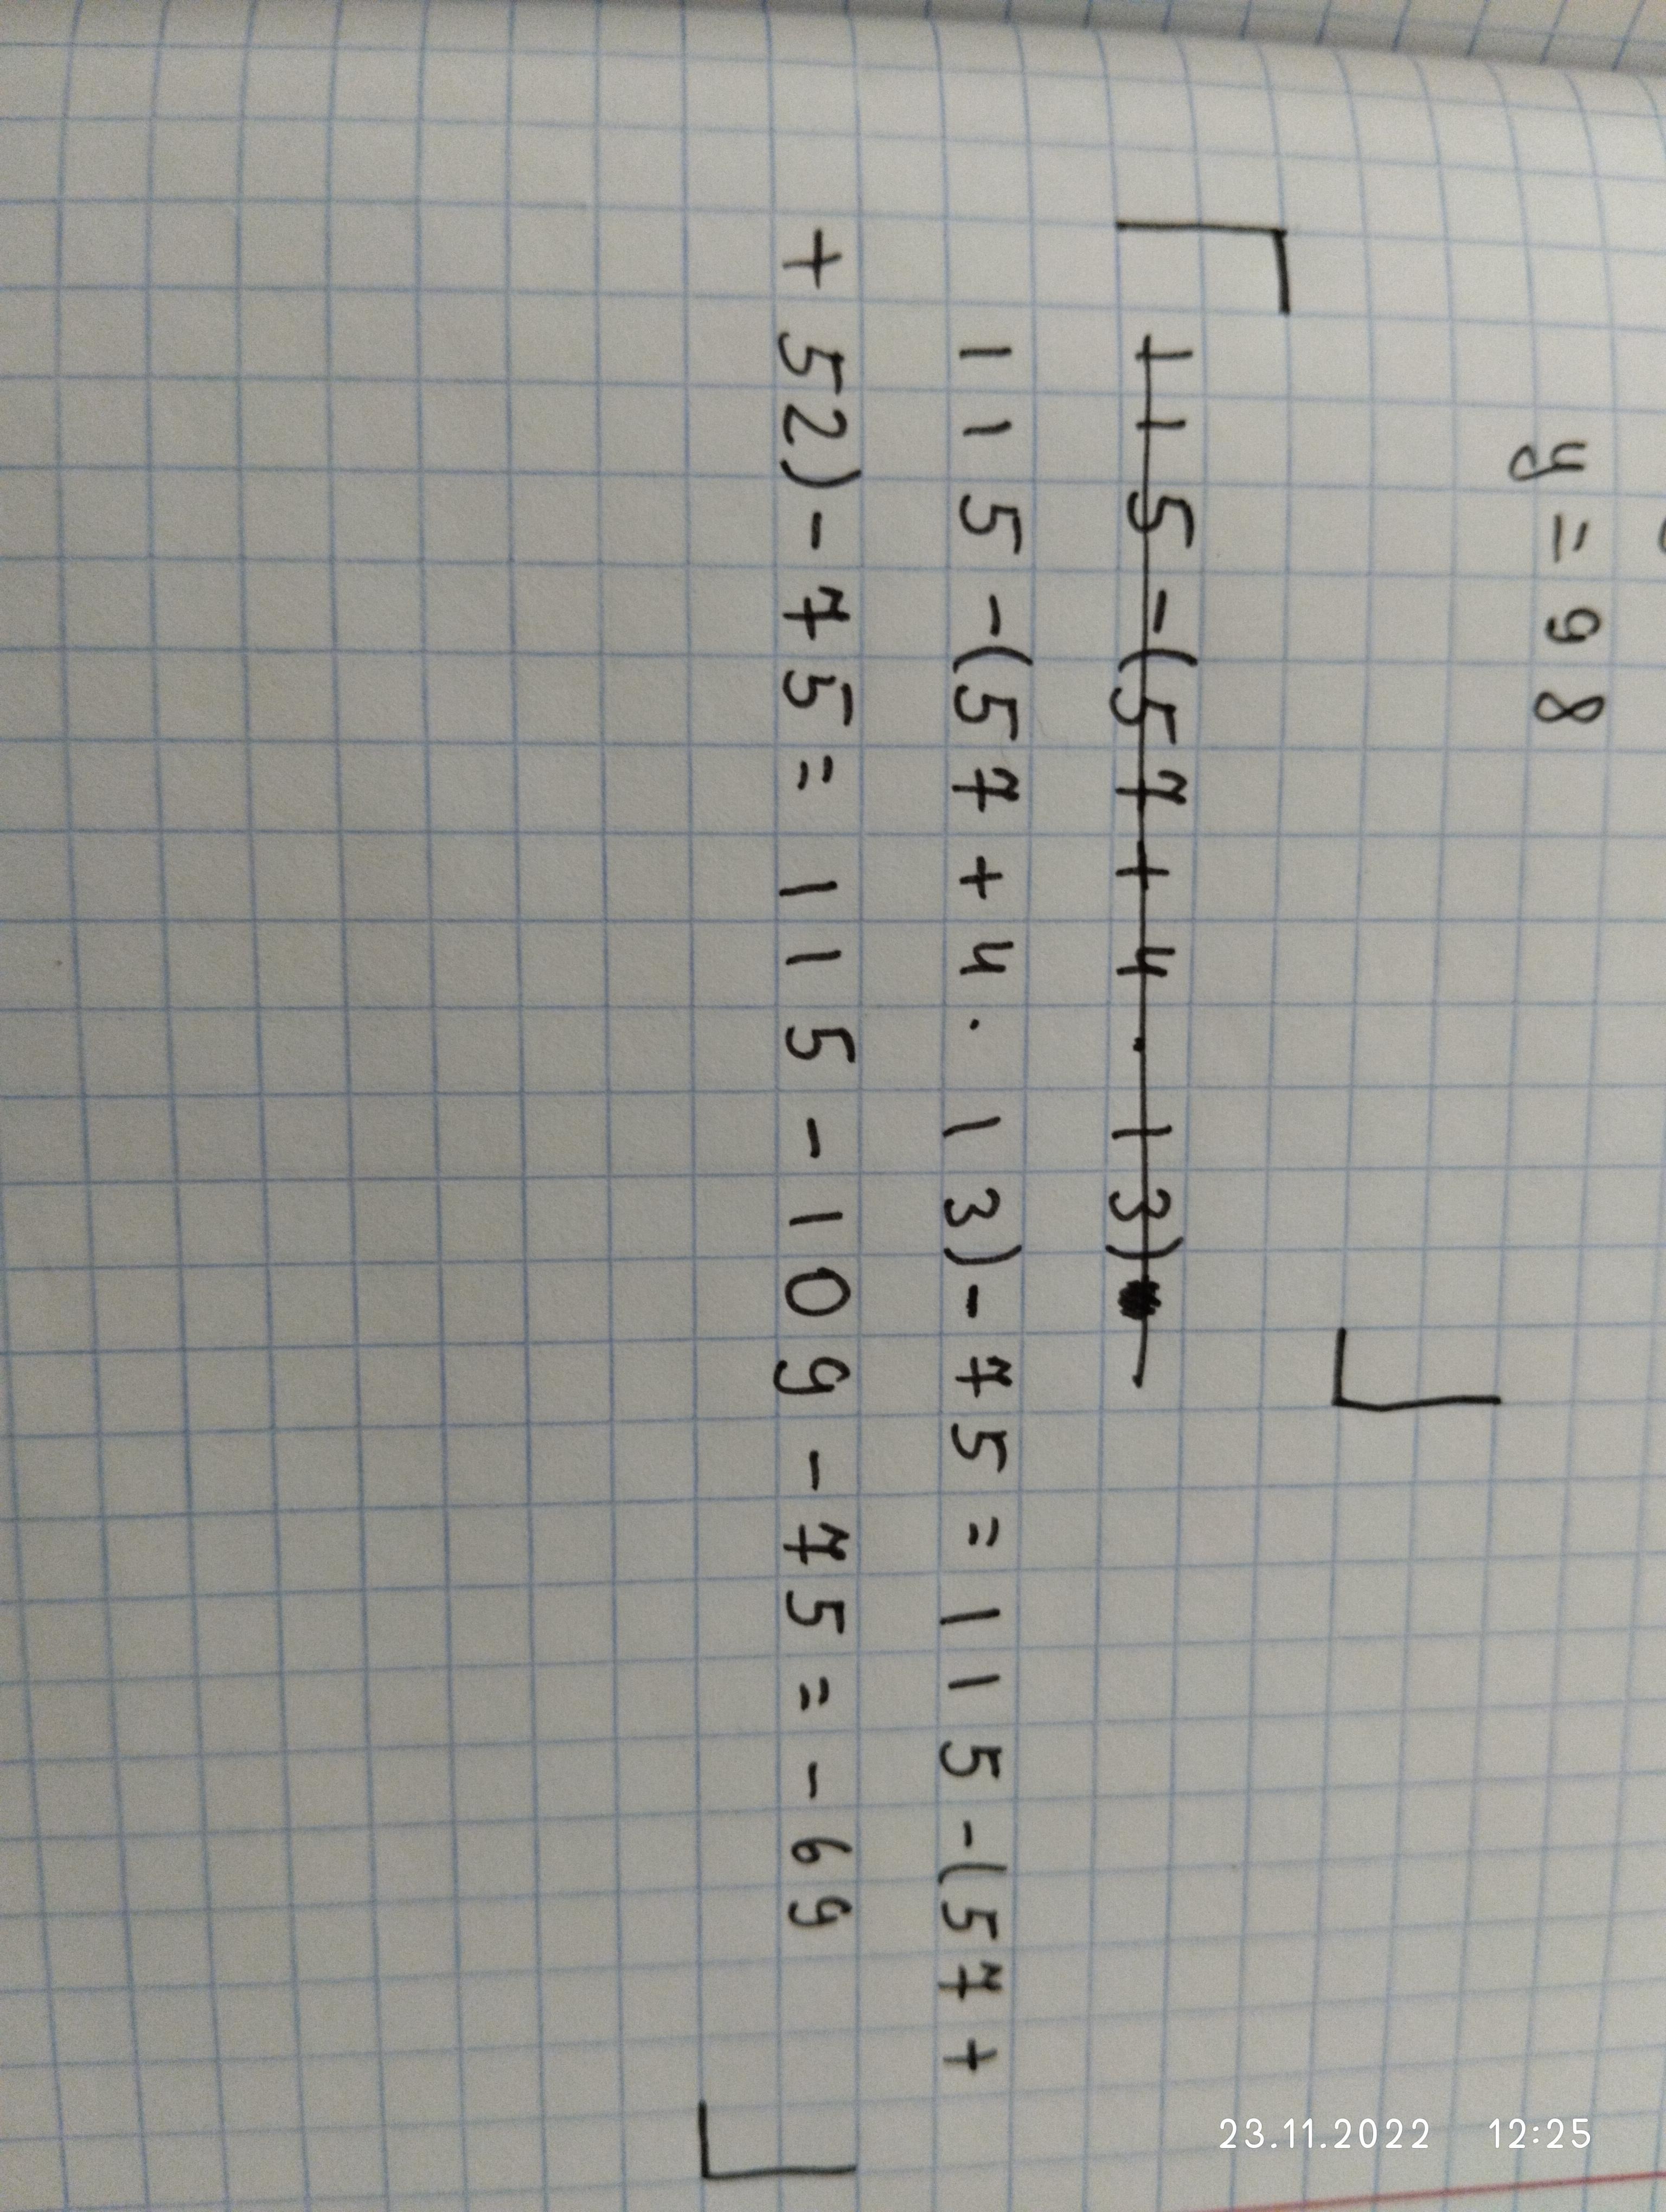 y = 98
115 - (57 + 4 · 13)
115 - (57 + 4 · 13) - 75 = 115 - (57 +
+ 52) - 75 = 115 - 109 - 75 = - 69
23.11.2022 12:25